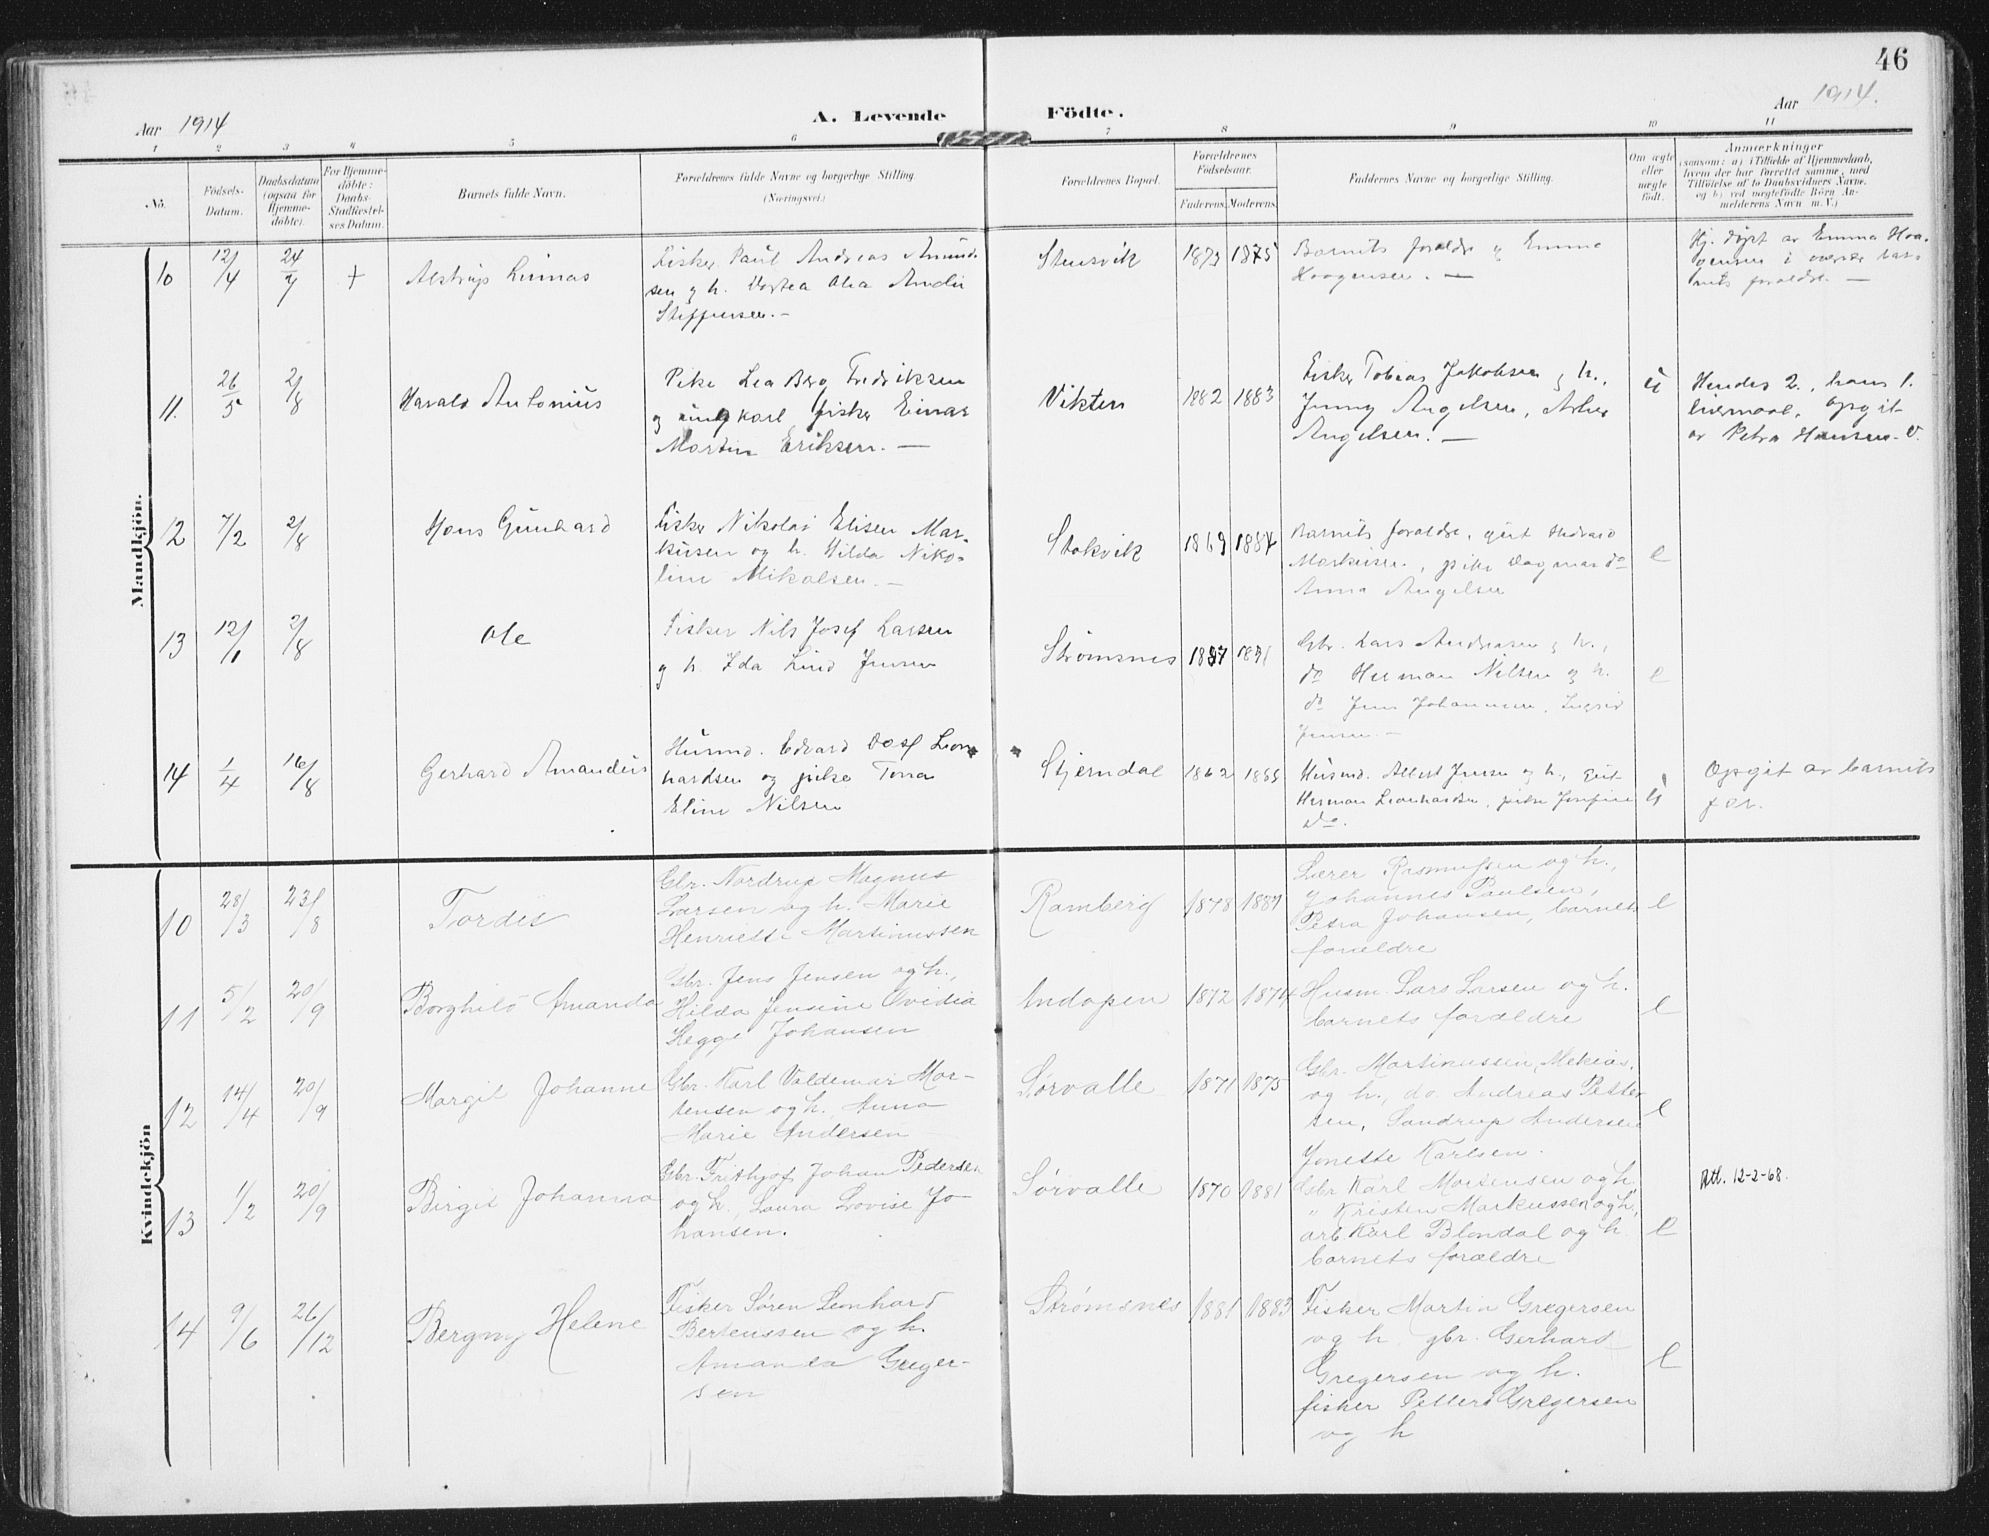 46
Aar 1914
A. Levende Födte.
Aar 1914.
1 2 3 4 5 6 7 8 9 10 11
Nö.
Födsels-
Datum.
Daabsdatum
(ogsaa for
Hjemme-
döbte).
For Hjemme-
döbte:
Daabs-
Stadfæstel-
ses Datum.
Barnets fulde Navn.
Forældrenes fulde Navne og borgerlige Stilling.
(Næringsvei.)
Forældrenes Bopæl.
Forældrenes
Födselsaar.
Faderens. Moderens.
Faddernes Navne og borgerlige Stilling.
Om ægte
eller
uægte
født.
Anmærkninger
(saasom: a) i Tilfælde af Hjemmedaab,
hvem der har forrettet samme, med
Tilföielse af to Daabsvidners Navne.
og b) ved uægtefödte Börn An-
melderens Navn m. V.)
Mandkjön.
10 12/4 24/7 +
Fisker Paul Andreas Amund-
sen g h.
Steffensen.-
Stensvik 1873 1875
Barnets foreldre g Emma
Haagensen. —
Hj. døpt av Emma Haa-
gensen i overvær bar-
nets foreldre. —
11. 26/5 2/8
Harald Antonius
Pike Lea Berg Fredriksen
g ungkarl fisker Einar
Martin Eriksen. —
Vikten 1882 1883
Fisker Tobias Jakobsen g h.,
Jenny Angelsen,
Angelsen. —
u
Hendes 2., hans 1.
leiermaal. Opgit
av Petra Hansen. V.
12 7/2 2/8
Hans Gunhard
Fisker Nikolai Elisen Mar-
kusen og h. Hilda Niko-
line Mikalsen. —
Stokvik 1869 1884
Barnets foreldre, gut Hedvard
Markusen, pike Dagmar do
Anna Angelsen
e
13 12/1 2/8
Ole
Fisker Nils Josef Larsen
g h. Ida Lind Jensen
Strømsnes 1887 1891
Gbr. Lars Andreasen g h.,
do Herman Nilsen og h.
do Jens Johannesen, Ingrid
Jensen. —
e
14 1/4 16/8
Gerhard Amandus
Husmd. Edvard Leon-
hardsen og pike Tona
Eline Nilsen
Stjerndal 1862 1885
Husmd. Albert Jensen og h., gut
Herman Leonhardsen, pike Josefine
do.
u
Opgit av barnets
far.
Kvindekjön
10 28/3 23/8
Tordis
Gbr. Nordrup Magnus
Larsen og h. Marie
Henriette Martinussen
Ramberg 1878 1887
Lærer Rasmussen og h.,
Johannes Paulsen,
Petra Johansen, barnets
forældre
e
11 5/2 20/9
Borghild Amanda
Gbr. Jens Jensen og h.,
Hilda Jensine Ovidia
Hegge Johansen
Andopen 1872 1874
Husm. Lars Larsen og h.
barnets forældre
e
12 14/4 20/9
Margit Johanne
Gbr. Karl Valdemar Mor-
tensen og h. Anna
Marie Andersen
Sørvalle 1871 1875
Gbr. Martinussen, Mekias.
og h., do. Andreas Petter
sen, Sandrup Andersen
Jonette Karlsen.
e
13 1/2 20/9
Birgit Johanna
Gbr. Frithjof Johan Pedersen
og h., Laura Lovise Jo
hansen.
Sørvalle 1870 1881
Gbr Karl Mortensen og h.
" Kristen Markussen og h,
arb. Karl Blondal og h.
barnets forældre
e
Att. 12-2-68.
14 9/6 26/12
Bergny Helene
Fisker Søren Leonhard
Berteussen og h.
Amanda Greger-
sen
Strømsnes 1881 1883
Fisker Martin Gregersen
og h gbr. Gerhard
Gregersen og h.
fisker Petter Gregersen
og h
e